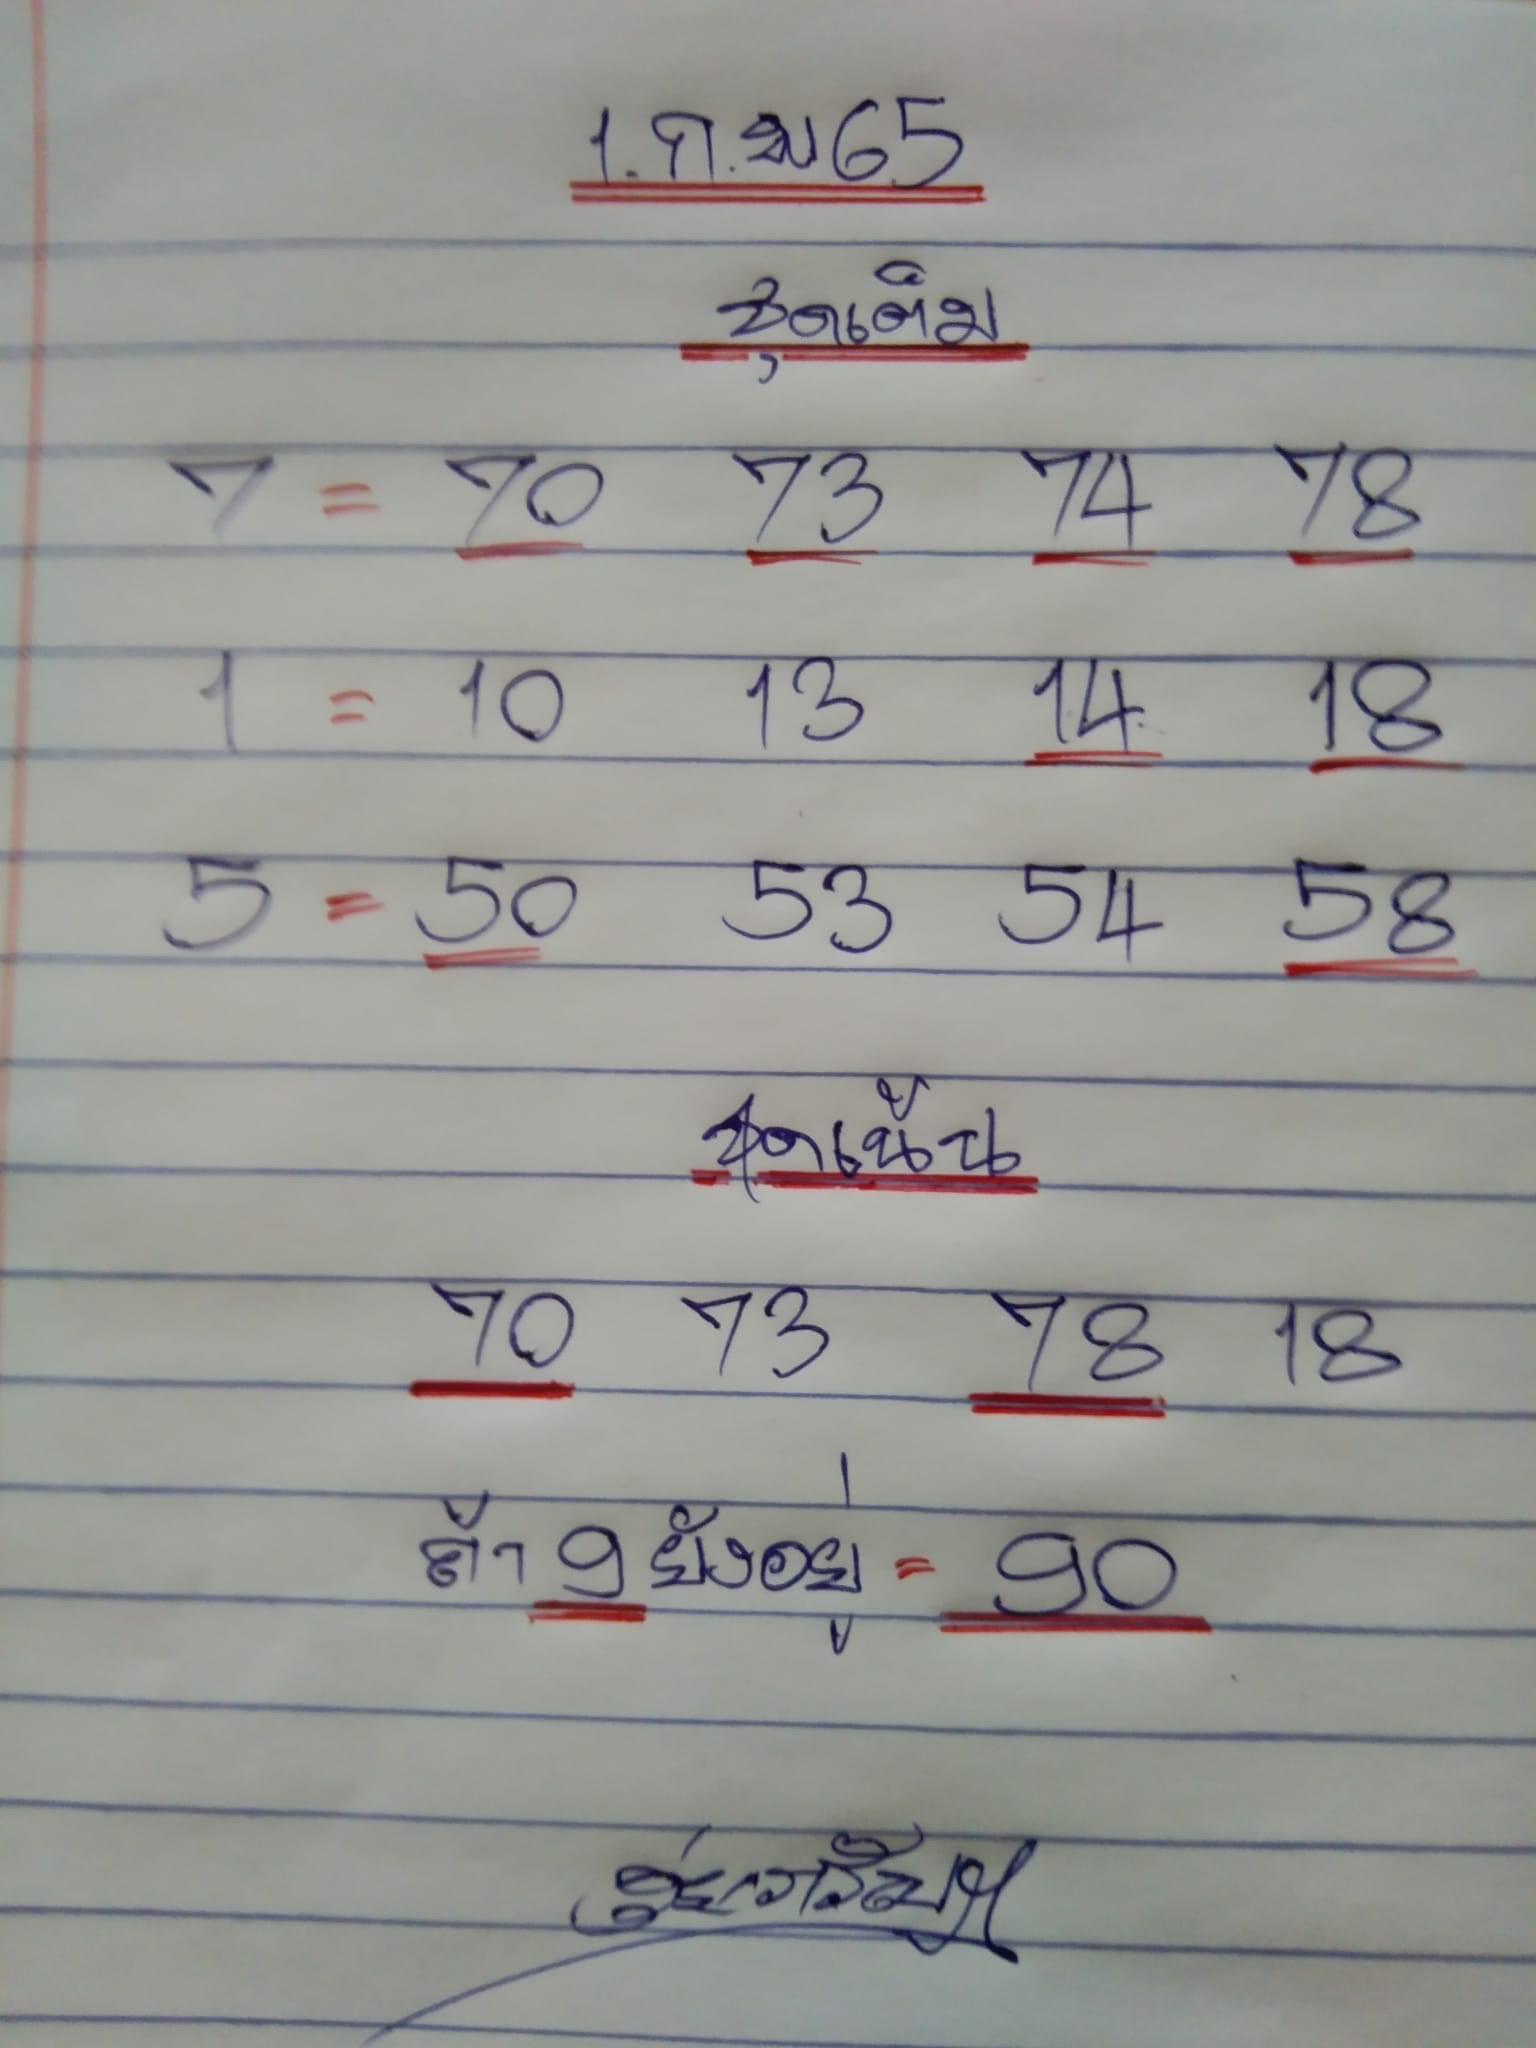 1.ก.พ 65
ชุดเต็ม
7 = 70 73 74 78
1 = 10 13 14 18
5 = 50 53 54 58
ชุดเน้น
70 73 78 18
ถ้า 9 ยังอยู่ = 90